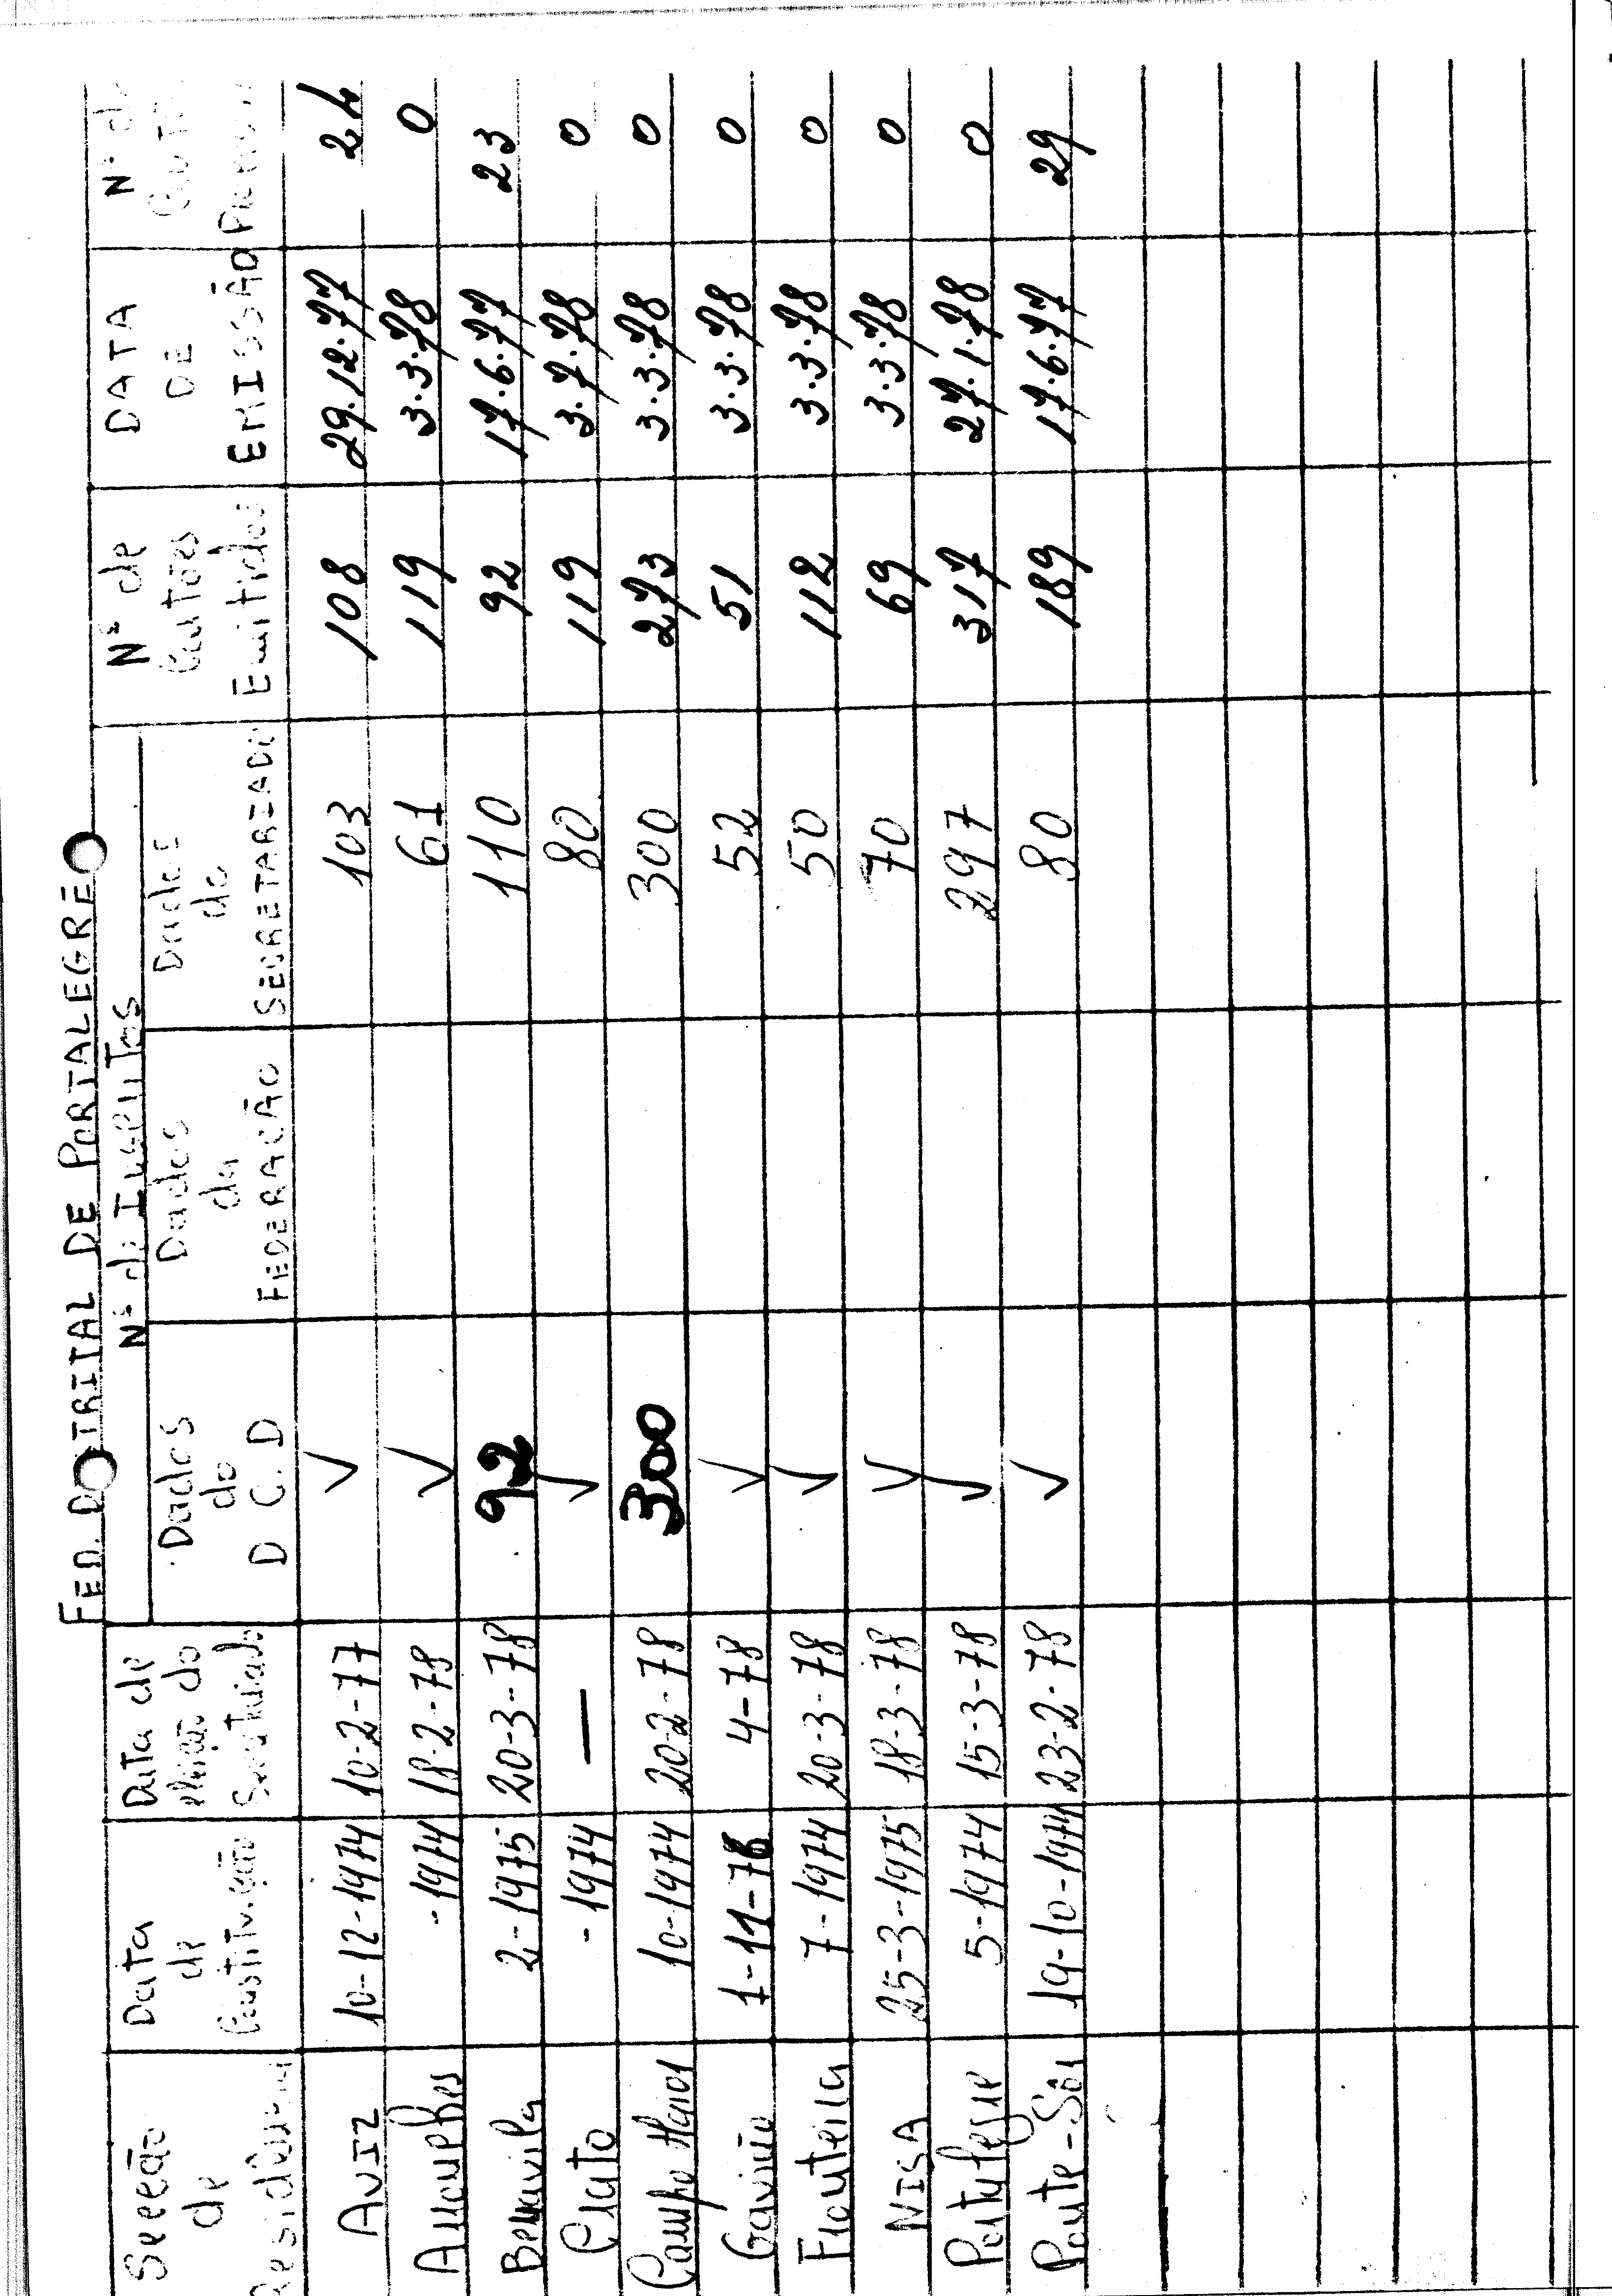 FED. DTRITAL DE PORTALEGRE
Secção de Residência
Data de Constituição
Data de eleição do Secretariado
Nº de Inscritos
Dados do D C. D
Dados da FEDERAÇÃO
Dados do SECRETARIADO
Nº de Cartões Emitidos
DATA DE EMISSÃO
Nº de
AVIZ 10-12-1974 10-2-77 √ 103 108 29.12.77 24
-1974 18-2-78 √ 61 119 3.3.78 0
Benavila 2-1975 20-3-78 92 110 92 17.6.77 23
Crato -1974 — √ 80 119 3.7.78 0
Campo Maior 10-1974 20-2-78 300 300 273 3.3.78 0
Gavião 1-11-76 4-78 √ 52 51 3.3.78 0
Fronteira 7-1974 20-3-78 √ 50 112 3.3.78 0
NISA 25-3-1975 18-3-78 √ 70 69 3.3.78 0
Portalegre 5-1974 15-3-78 √ 297 317 27.1.78 0
Ponte-Sôr 19-10-1974 23-2-78 √ 80 189 17.6.77 29